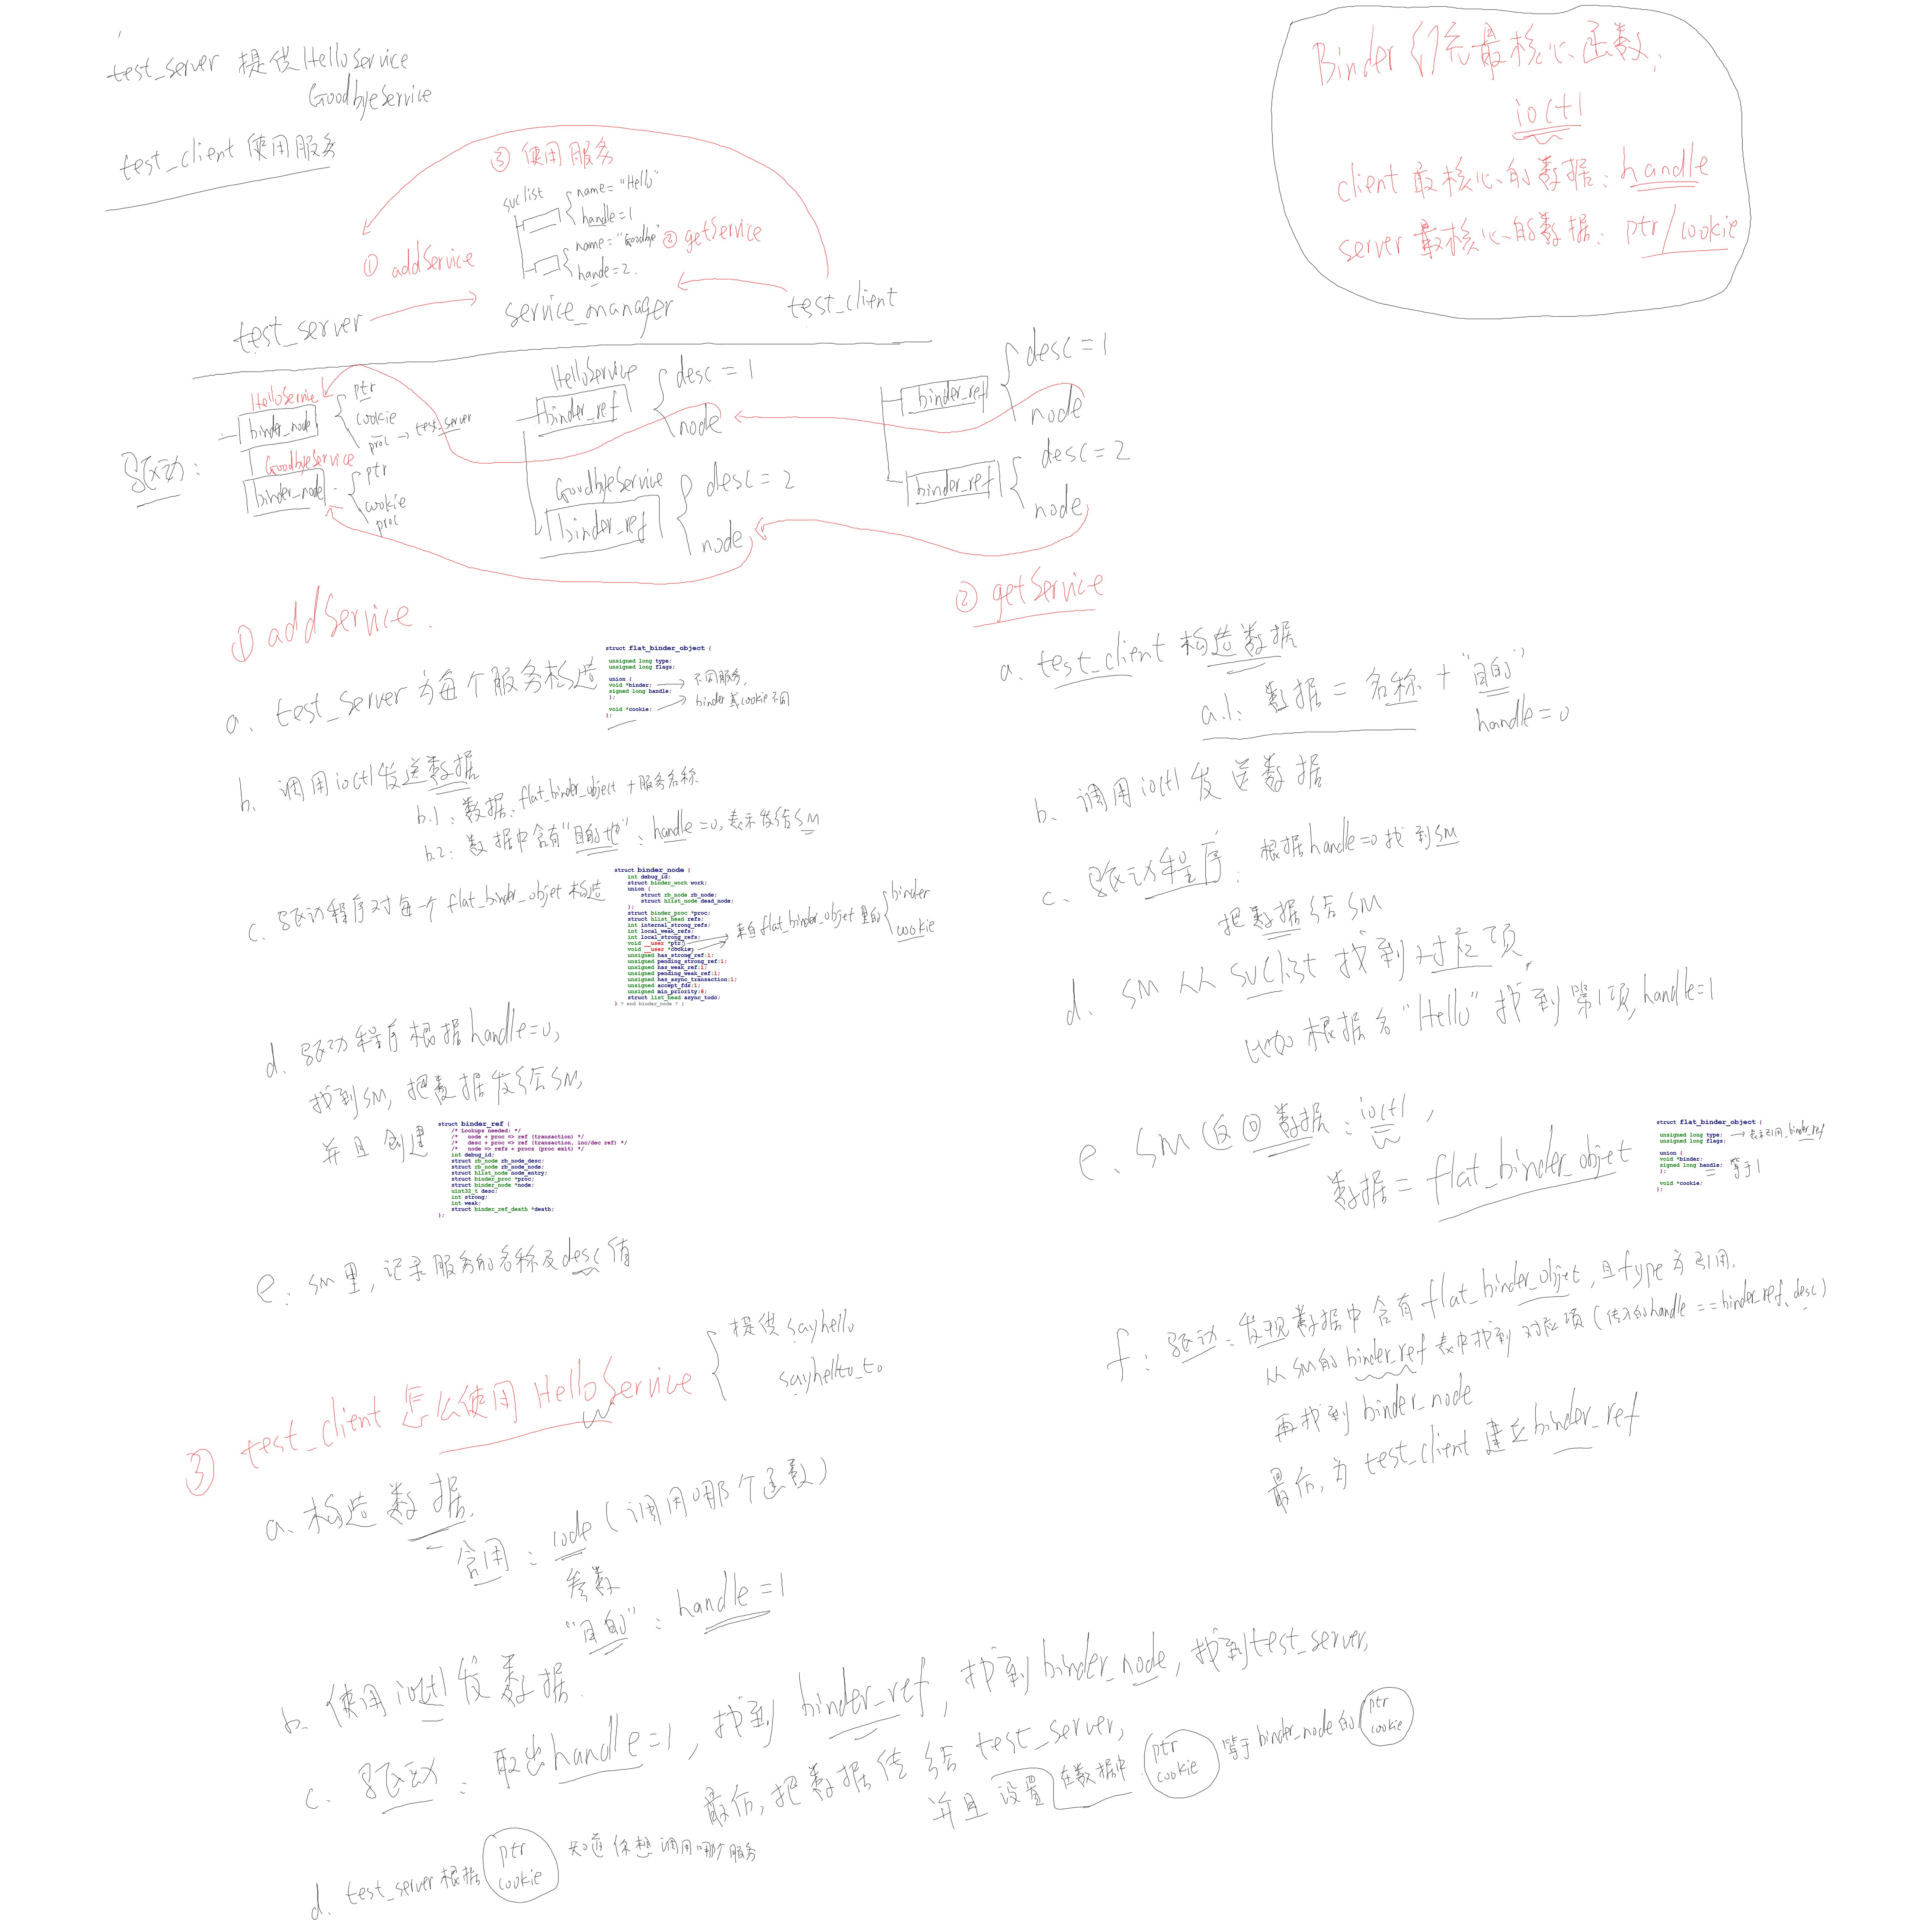 test_server 提供HelloService
GoodbyeService
test_client 使用服务
Binder 系统最核心函数,
ioctl
client 最核心的数据: handle
server 最核心的数据: ptr/cookie
③ 使用服务
svclist
name="Hello"
handle=1
name="Goodbye"
hande=2.
① addService
② getService
test_server
service_manager
test_client
驱动:
HelloService
binder_node
ptr
cookie
proc → test_server
GoodbyeService
binder_node
ptr
cookie
proc
HelloService
binder_ref
desc=1
node
GoodbyeService
binder_ref
desc=2
node
binder_ref
desc=1
node
binder_ref
desc=2
node
① addService.
a、test_server 为每个服务构造
struct flat_binder_object {
unsigned long type;
unsigned long flags;
union {
void *binder;
signed long handle;
};
void *cookie;
};
不同服务,
binder或cookie不同
b、调用ioctl发送数据
b.1: 数据: flat_binder_object + 服务名称
b.2: 数据中含有“目的地”: handle=0,表示发给SM
c、驱动程序对每一个 flat_binder_objet 构造
struct binder_node {
int debug_id;
struct binder_work work;
union {
struct rb_node rb_node;
struct hlist_node dead_node;
};
struct binder_proc *proc;
struct hlist_head refs;
int internal_strong_refs;
int local_weak_refs;
int local_strong_refs;
void __user *ptr;
void __user *cookie;
unsigned has_strong_ref:1;
unsigned pending_strong_ref:1;
unsigned has_weak_ref:1;
unsigned pending_weak_ref:1;
unsigned has_async_transaction:1;
unsigned accept_fds:1;
unsigned min_priority:8;
struct list_head async_todo;
} ? end binder_node ? ;
来自flat_binder_objet 里的
binder
cookie
d、驱动程序根据handle=0,
找到SM, 把数据发给SM,
并且创建
struct binder_ref {
/* Lookups needed: */
/*   node + proc => ref (transaction) */
/*   desc + proc => ref (transaction, inc/dec ref) */
/*   node => refs + procs (proc exit) */
int debug_id;
struct rb_node rb_node_desc;
struct rb_node rb_node_node;
struct hlist_node node_entry;
struct binder_proc *proc;
struct binder_node *node;
uint32_t desc;
int strong;
int weak;
struct binder_ref_death *death;
};
e: SM里,记录服务的名称及desc值
② getService
a、test_client 构造数据
a.1: 数据 = 名称 + “目的”
handle=0
b、调用ioctl 发送数据
c、驱动程序: 根据handle=0找到SM
把数据给SM
d、SM 从 svclist 找到对应项
比如根据名“Hello”找到第1项,handle=1
e、SM返回数据: ioctl,
数据 = flat_binder_objet
struct flat_binder_object {
unsigned long type;
unsigned long flags;
union {
void *binder;
signed long handle;
};
void *cookie;
};
表示引用,binder_ref
等于1
f: 驱动: 发现数据中含有flat_binder_objet,且type为引用.
从SM的binder_ref表中找到对应项(传入的handle == binder_ref.desc)
再找到binder_node
最后,为 test_client 建立binder_ref
③ test_client 怎么使用 HelloService
提供 sayhello
sayhello_to
a、构造数据.
含用: code (调用哪个函数)
参数
“目的”: handle=1
b、使用ioctl发数据.
c、驱动: 取出handle=1, 找到 binder_ref, 找到binder_node, 找到test_server,
最后,把数据传给 test_server,
并且设置在数据中 ptr cookie 等于binder_node的 ptr cookie
d、test_server根据 ptr cookie 知道你想调用哪个服务